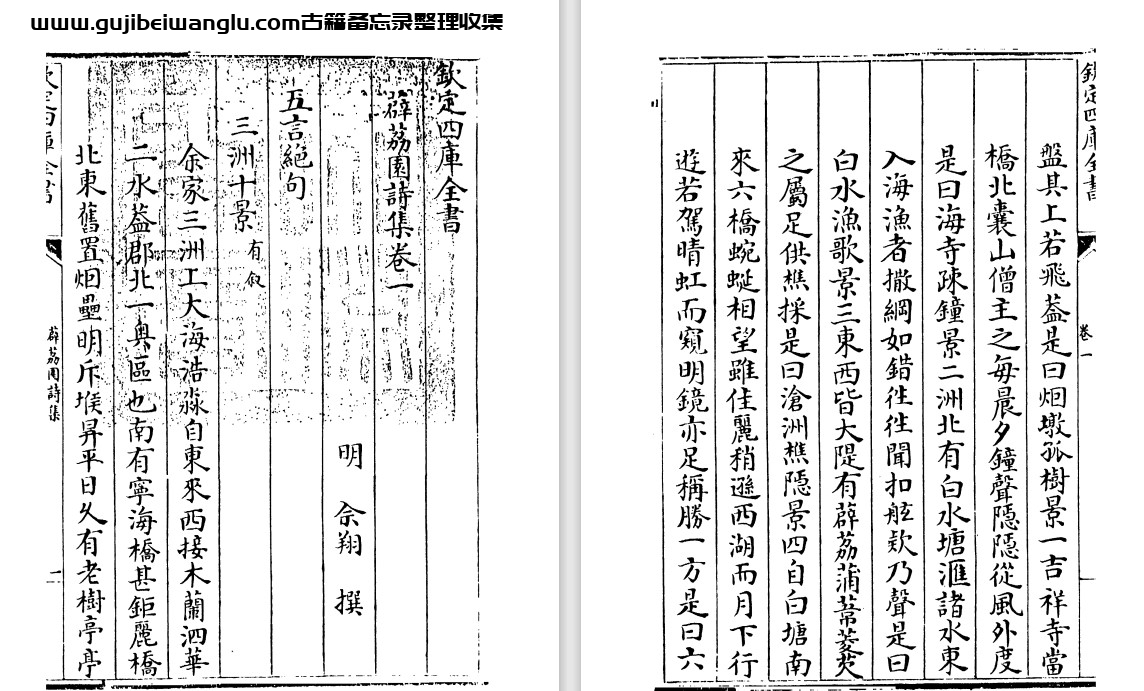 www.gujibeiwanglu.com古籍备忘录整理收集
欽定四庫全書
薜荔園詩集卷一
明 佘翔 撰
五言絕句
三洲十景有叙
余家三洲工大海浩淼自東來西接木蘭泗華
二水葢郡北一奥區也南有寧海橋甚鉅麗橋
北東舊置烟壘明斥堠昇平日乆有老樹亭亭
薜荔園詩集
一
欽定四庫全書
卷一
盤其上若飛葢是曰烟墩孤樹景一吉祥寺當
橋北囊山僧主之每晨夕鐘聲隱隱從風外度
是曰海寺疎鐘景二洲北有白水塘滙諸水東
入海漁者撒網如錯徃徃聞扣舷欵乃聲是曰
白水漁歌景三東西皆大隄有薜荔蒲葦菱芡
之屬足供樵採是曰滄洲樵隱景四自白塘南
來六橋蜿蜒相望雖佳麗稍遜西湖而月下行
遊若駕晴虹而窺明鏡亦足稱勝一方是曰六